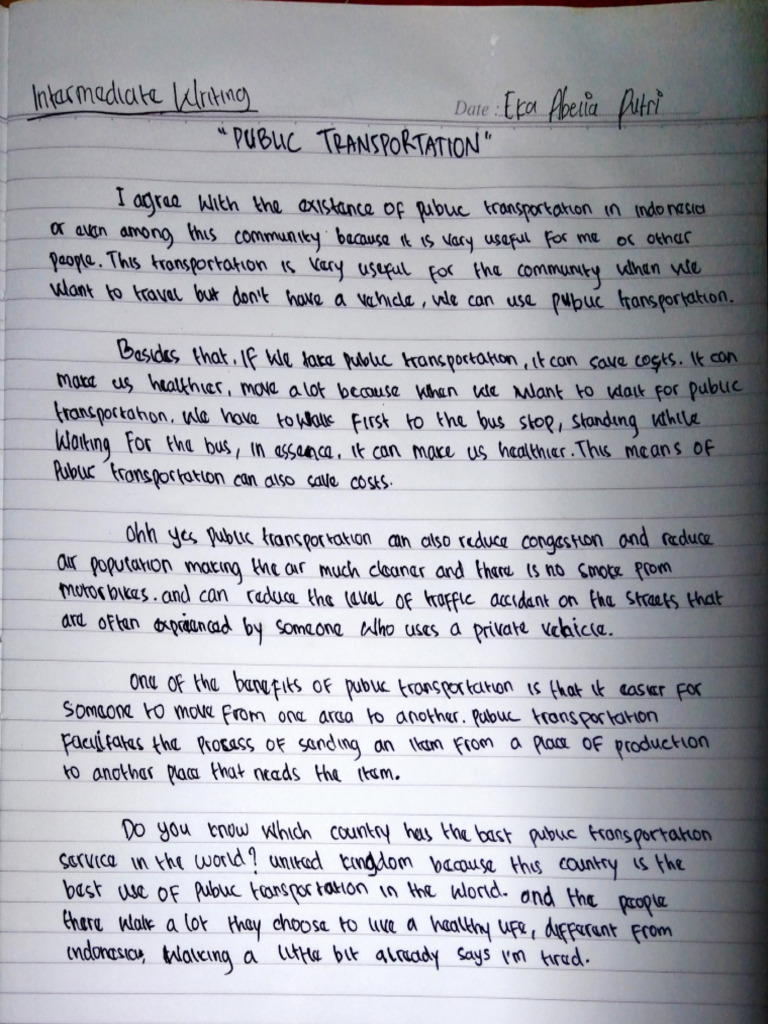 Intermediate Writing
Date : Eka Abelia Putri
"PUBLIC TRANSPORTATION"
I agree with the existence of public transportation in indonesia
or even among this community because it is very useful for me or other
people. This transportation is very useful for the community when we
want to travel but don't have a vehicle, we can use public transportation.
Besides that, if we take public transportation, it can save costs. It can
make us healthier, move a lot because when we want to wait for public
transportation, we have to walk first to the bus stop, standing while
waiting for the bus, in essence, it can make us healthier. This means of
Public transportation can also save costs.
Ohh yes public transportation can also reduce congestion and reduce
air population making the air much cleaner and there is no smoke from
motorbikes. and can reduce the level of traffic accident on the streets that
are often exprienced by someone who uses a private vehicle.
One of the benefits of public transportation is that it easier for
someone to move from one area to another. Public transportation
facilitates the process of sending an item from a place of production
to another place that needs the item.
Do you know which country has the best public transportation
service in the world? united kingdom because this country is the
best use of public transportation in the world. and the people
there walk a lot they choose to live a healthy life, different from
indonesia, walking a little bit already says i'm tired.